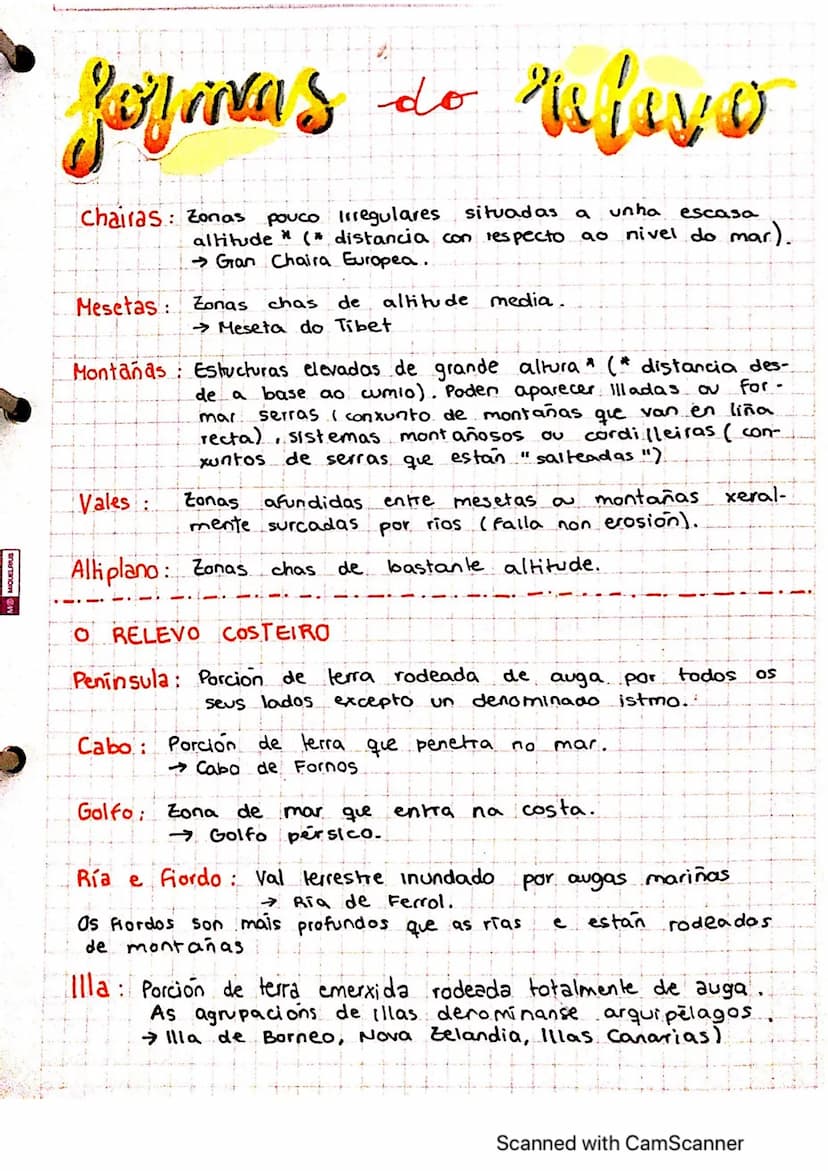 formas do relevo
Chairas: Zonas pouco irregulares situadas a unha escasa
altitude * (* distancia con respecto ao nivel do mar).
→ Gran Chaira Europea.
Mesetas: Zonas chas de altitude media.
→ Meseta do Tibet
Montañas: Estructuras elevadas de grande altura * (* distancia des-
de a base ao cumio). Poden aparecer illadas ou for-
mar serras (conxunto de montañas que van en liña
recta), sistemas montañosos ou cordilleiras (con-
xuntos de serras que están "salteadas")
Vales: Zonas afundidas entre mesetas ou montañas xeral-
mente surcadas por ríos (falla non erosión).
Altiplano: Zonas chas de bastante altitude.
O RELEVO COSTEIRO
Península: Porción de terra rodeada de auga por todos os
seus lados excepto un denominado istmo.
Cabo: Porción de terra que penetra no mar.
→ Cabo de Fornos
Golfo: Zona de mar que entra na costa.
→ Golfo pérsico.
Ría e fiordo: Val terrestre inundado por augas mariñas
→ Ría de Ferrol.
Os fiordos son mais profundos que as rías e están rodeados
de montañas
Illa: Porción de terra emerxida rodeada totalmente de auga.
As agrupacións de illas denominanse arquipélagos.
→ Illa de Borneo, Nova Zelandia, Illas Canarias)
MIQUELRIUS
Scanned with CamScanner